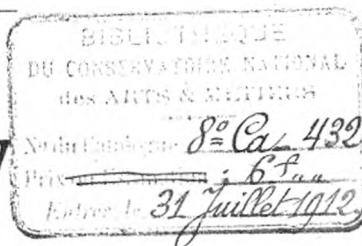 BIBLIOTHÈQUE
DU CONSERVATOIRE NATIONAL
des ARTS & METIERS
No du Catalogue 8º Ca 432
Prix : 6 f. "
Entrée le 31 Juillet 1912